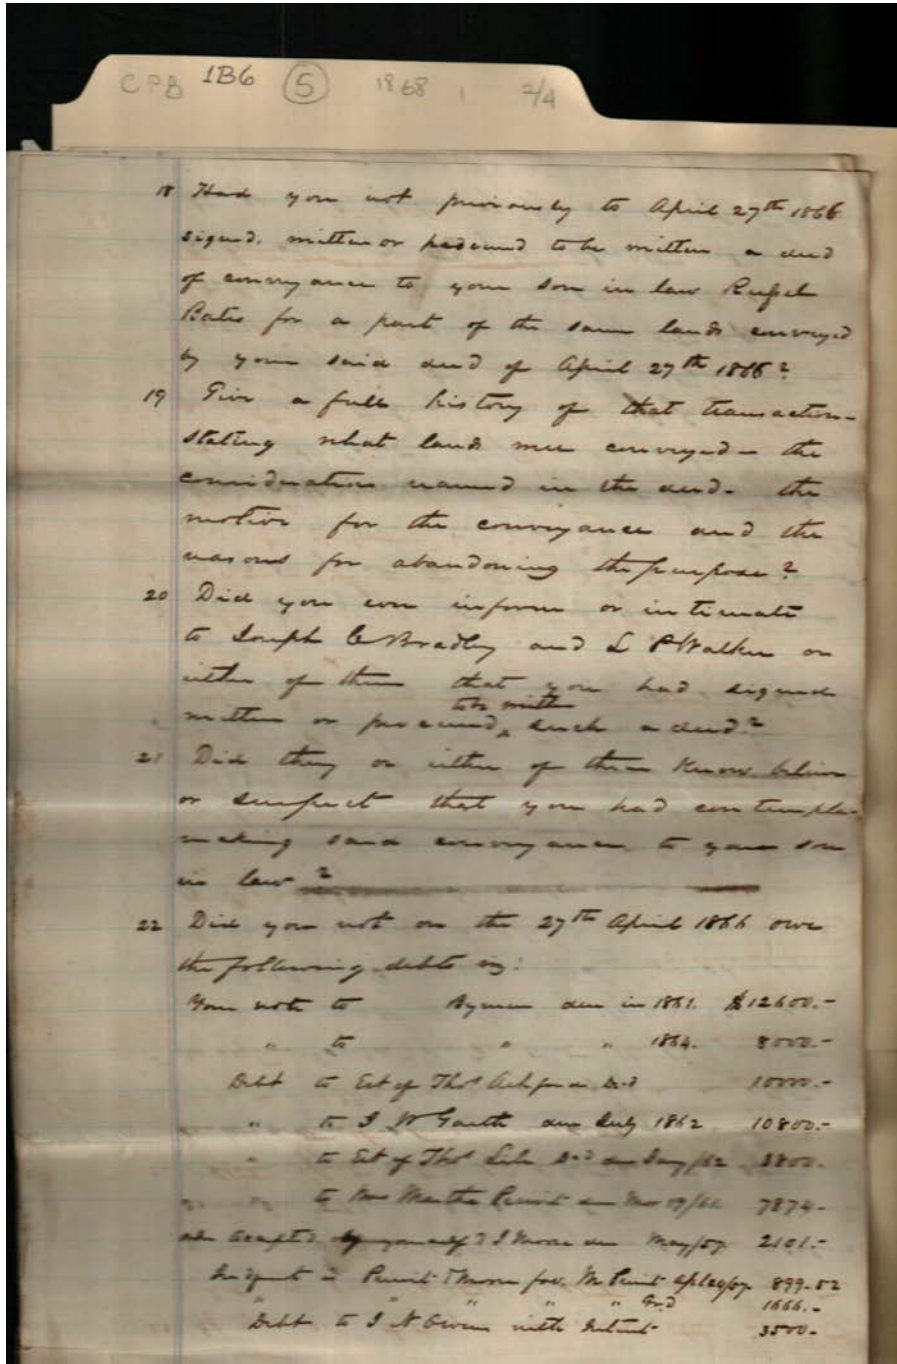 CPB 1B6 5 1868 2/4
18 Had you not previously to April 27th 1866
signed, written or procured to be written a deed
of conveyance to your son in law
Bates for a part of the same lands conveyed
by your said deed of April 27th 1866?
19 Give a full history of that transaction-
stating what lands were conveyed - the
consideration named in the deed - the
motive for the conveyance and the
reasons for abandoning the purpose?
20 Did you ever inform or intimate
to Joseph C Bradley and L P Walker or
either of them that you had signed
to be written
written or procured, such a deed?
21 Did they or either of them Know believe
or suspect that you had contempla-
making said conveyance to your son
in law?
22 Did you not on the 27th April 1866 owe
the following debts viz:
Your note to due in 1861. $12600.-
" to " " 1864. 8000.-
Debt to Est of Thos Decd 10000.-
" to J W Garth due July 1862 10800.-
" to Est of Thos Decd due /62 3800.-
to Mrs Martha due 7874-
accepted by yourself & J Moore due May/57 2101.-
& Moore for 899.52
" " " " " 1666.-
Debt to J N Owen with Interest 3500-